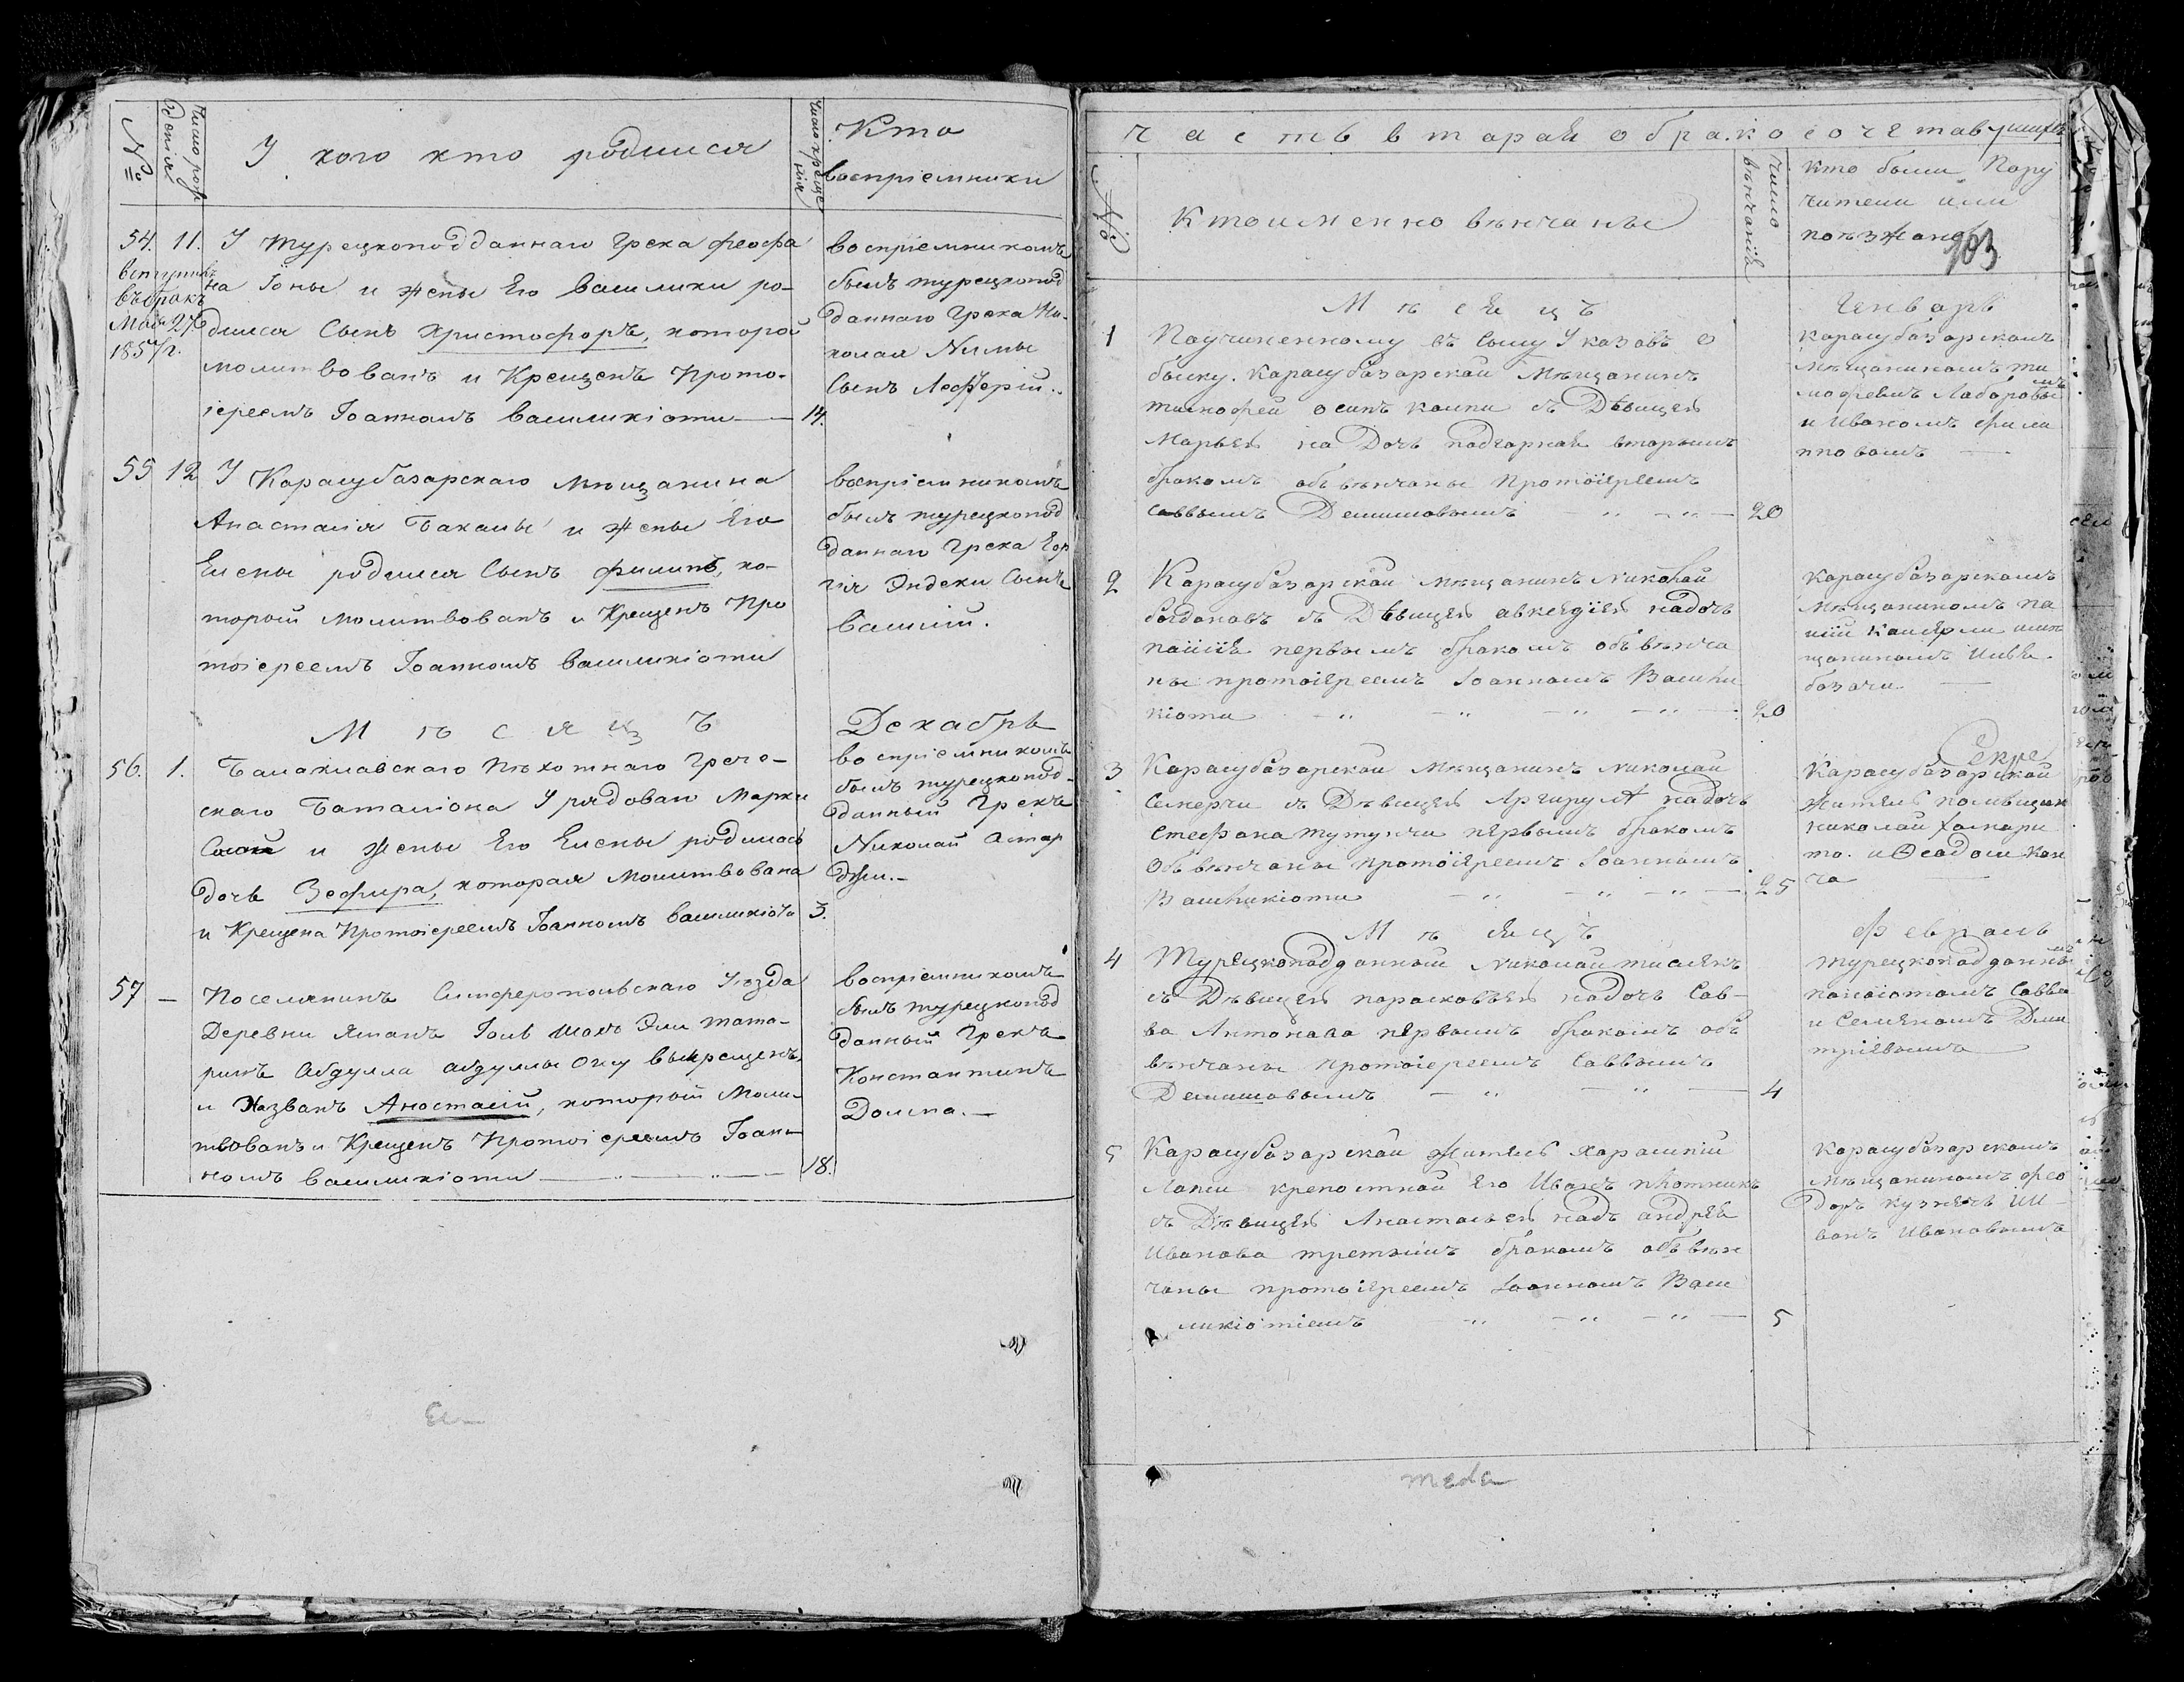 №
Число рож
денія
У кого кто родился
Число креще
нія
Кто
воспріемники
54. 11. У Турецкоподданнаго Грека Феофа
на Іоны и жены Его Василики ро-
дился Сынъ Христофоръ, которой
молитвованъ и Крещенъ Прото-
іереемъ Іоанномъ Василикіоти — 14.
вступилъ
въ бракъ
Мая 27
1857 г.
воспріемникомъ
былъ турецкопод
даннаго Грека Ни-
колая
Сынъ Лефтерій..
55 12 У Карасубазарскаго Мѣщанина
Анастасія Бакалы и жены Его
Елены родился Сынъ Филипъ, ко-
торый молитвованъ и Крещенъ Про
тоіереемъ Іоанномъ Василикіоти
воспріемникомъ
былъ турецкопод
даннаго Грека Еор
гія Эндеки Сынъ
Василій.
Мѣсяцъ
Декабрь
56. 1. Балаклавскаго Пѣхотнаго Грече-
скаго Баталіона У рядоваго Марки
и жены Его Елены родилась
дочь Зефира, которая Молитвована
и Крещена Протоіереемъ Іоанномъ Василикіоти 3.
воспріемникомъ
былъ турецкопод-
данный Грекъ
Николай Астар
джи.-
57 — Поселянинъ Симферопольскаго Уѣзда
Деревни Эли тата-
ринъ Абдулла Абдуллы Оглу выкрещенъ
и Названъ Анастасій, которой Моли-
твованъ и Крещенъ Протоіереемъ Іоан-
номъ Василикіоти — 18.
воспріемникомъ
былъ турецкопод
данный Грекъ
Константинъ
Долма.—
часть втарай о бракосочетавушихъ
№
Кто именно вѣнчаны
Число
вѣнчанія
Кто были Пору
чители или
поѣзжане
103
Мѣсецъ
Генварь
1 Поучиненному въ Сылу Указовъ о
быску. Карасубазарскай Мѣщанинъ
тимофей осипъ с Дѣвицей
Марьей на Дочь падгарнай вторымъ
бракомъ обвѣнчаны Протоіереемъ
Саввымъ Демишовымъ — 20
Карасубазарскамъ
Мѣщаниномъ ти
мофеемъ Лабаровы
мъ
и Иваномъ фили
повамъ —
2 Карасубазарскай мѣщанинъ Николай
богдановъ съ Дѣвицей авкедіей надочь
паниѣ первымъ бракомъ обвѣнча
ны протоіереемъ Іоанномъ Васили
кіоти — 20
Карасубазарскамъ
Мѣщаниномъ па
мѣ
щаниномъ
базачи —
3 Карасубазарскай Мѣщанинъ Николай
Семерчи съ Дѣвицей Аргируй надочь
Стефана тутунчи первымъ бракомъ
Обвѣнчаны протоіереемъ Іоанномъ
Василикіоти — 25
Секре
Карасубазарскай
житель помѣщик
николай
то. и Θеадоси Кан
ча —
Мѣсяцъ
Февраль
4 Турецкападданный Николай
съ Дѣвицей парасковьей надочь Сав-
ва Антонава первамъ бракамъ об
вѣнчаны протоіереемъ Саввымъ
Демишовымъ — 4
Турецкападданны
мъ
панаіотамъ Савва
и Семеномъ Дми
тріевымъ —
5 Карасубазарскай житель харлампій
Лапи крепостнай Его Иванъ плотникъ
съ Дѣвицей Анастасьей надъ андрѣе
Иванова третьимъ бракамъ обвѣн
чаны протоіереемъ Іоанномъ Васи
ликіотіемъ — 5
Карасубазарскамъ
Мѣщаниномъ фео
доръ кузнецъ и И
ванъ Ивановымъ